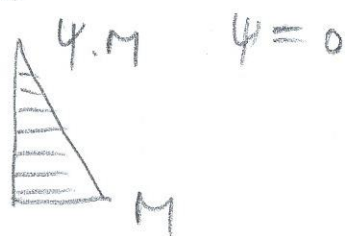 ψ.M ψ=0
M